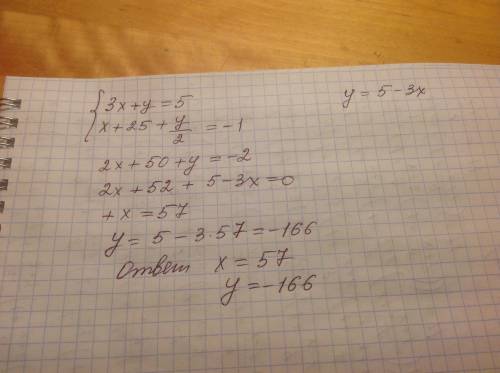 3x+y=5
y=5-3x
x+25+y/2=-1
2x+50+y=-2
2x+52+5-3x=0
+x=57
y=5-3·57=-166
Ответ x=57
y=-166